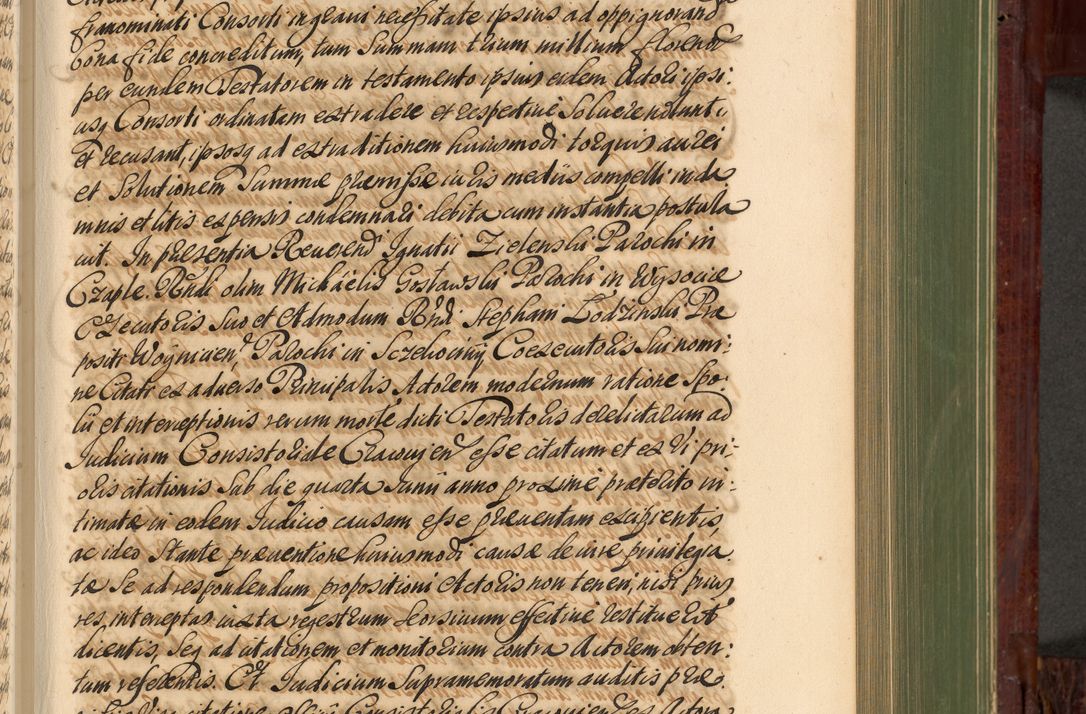 franominati Consorti in gravi necessitate ipsius ad oppignorand
bona fide concreditum, tum Summam trium millium floren
per eundem Testatorem in testamento ipsius eidem Actori ipsi:
usq Consorti ordinatam extradere et respective Soluere nollunt
et recusant, ipsosq ad extraditionem huiusmodi torquis aurei
et Solutionem Summæ præmissæ iuris mediis compelli in da
mnis et litis expensis condemnari debita cum instantia postula
uit. In præsentia Reuerend Ignatii Zielenski Parochi in
Czaple. Rndi olim Michaelis Gostawski Parochi in Wysocice
Executoris suo et Admodum Rnd Stephani Lodzinski Præ
positi Woynicien Parochi in Szczelociny Coexecutoris sui nomi:
ne Citati ex aduerso Principalis Actorem modernum ratione Spo:
lii et interceptionis rerum morte dicti Testatoris derelictarum ad
Iudicium Consistoriale Cracouien esse citatum et ex vi pri:
oris citationis sub die quarta Iunii anno proxime præterito in:
timatæ in eodem Iudicio causam esse præuentam excipientis,
ac ideo stante præuentione huiusmodi causæ de iure priuilegia
tæ se ad respondendum propositioni Actoris non teneri, nisi prius
res, interceptas iuxta regestrum seorsiuum effective restituerit
dicentis, Seq ad citationem et monitorium contra Actorem obten:
tum referentis. Et Iudicium Supramemoratum auditis præ